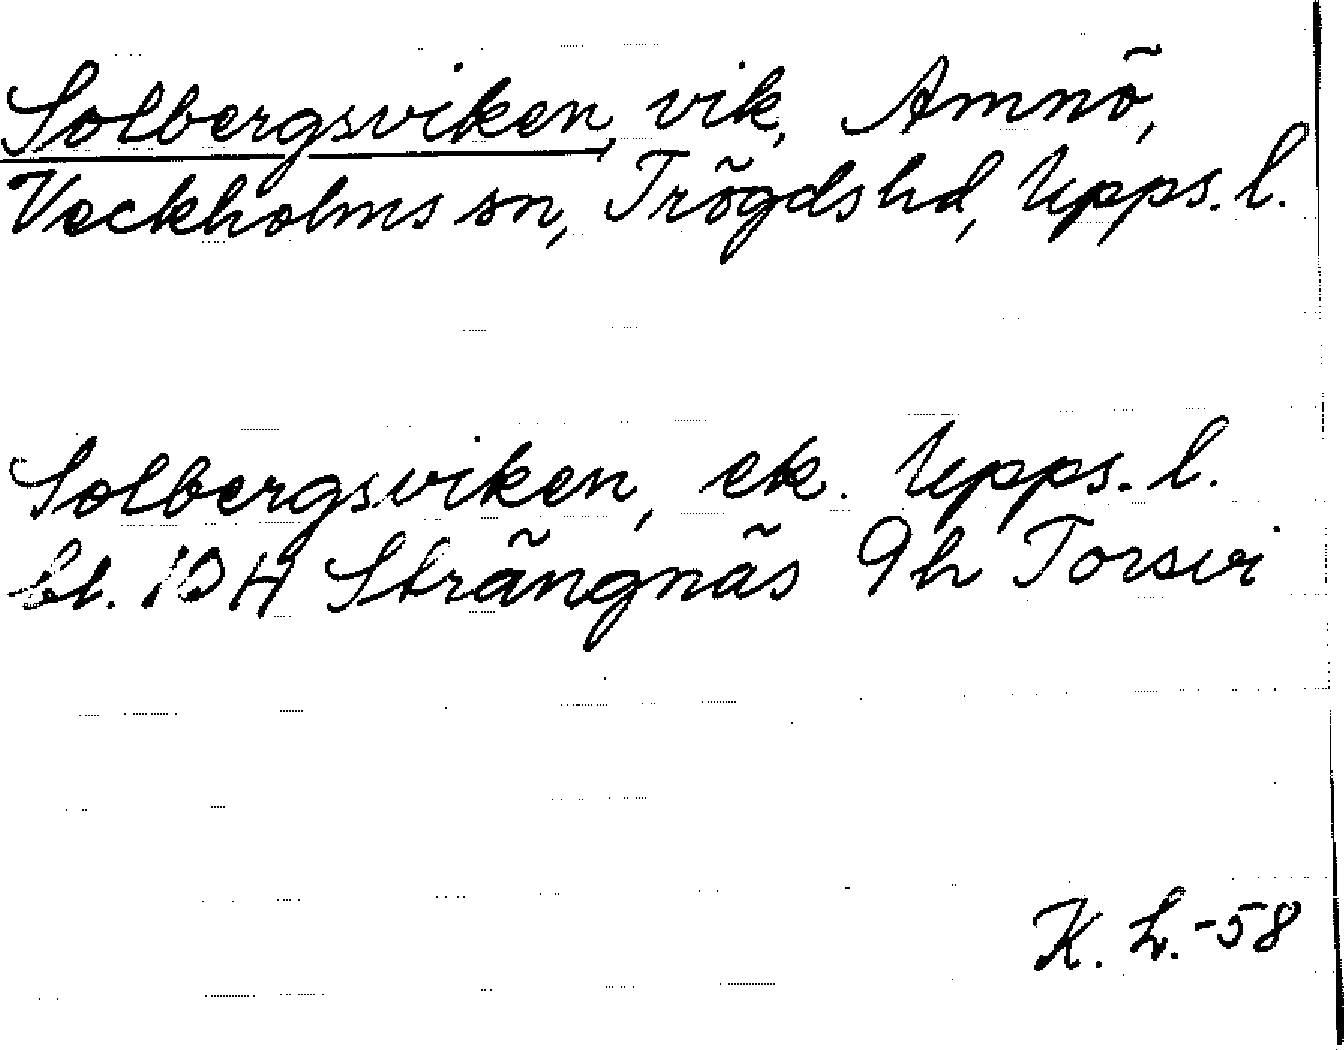 Solbergsviken, vik, Amnö,
Veckholms sn, Trögds hd, Upps. l.
Solbergsviken, ek. Upps. l.
bl. 10H Strängnäs 9h Torsvi
K. L. -58